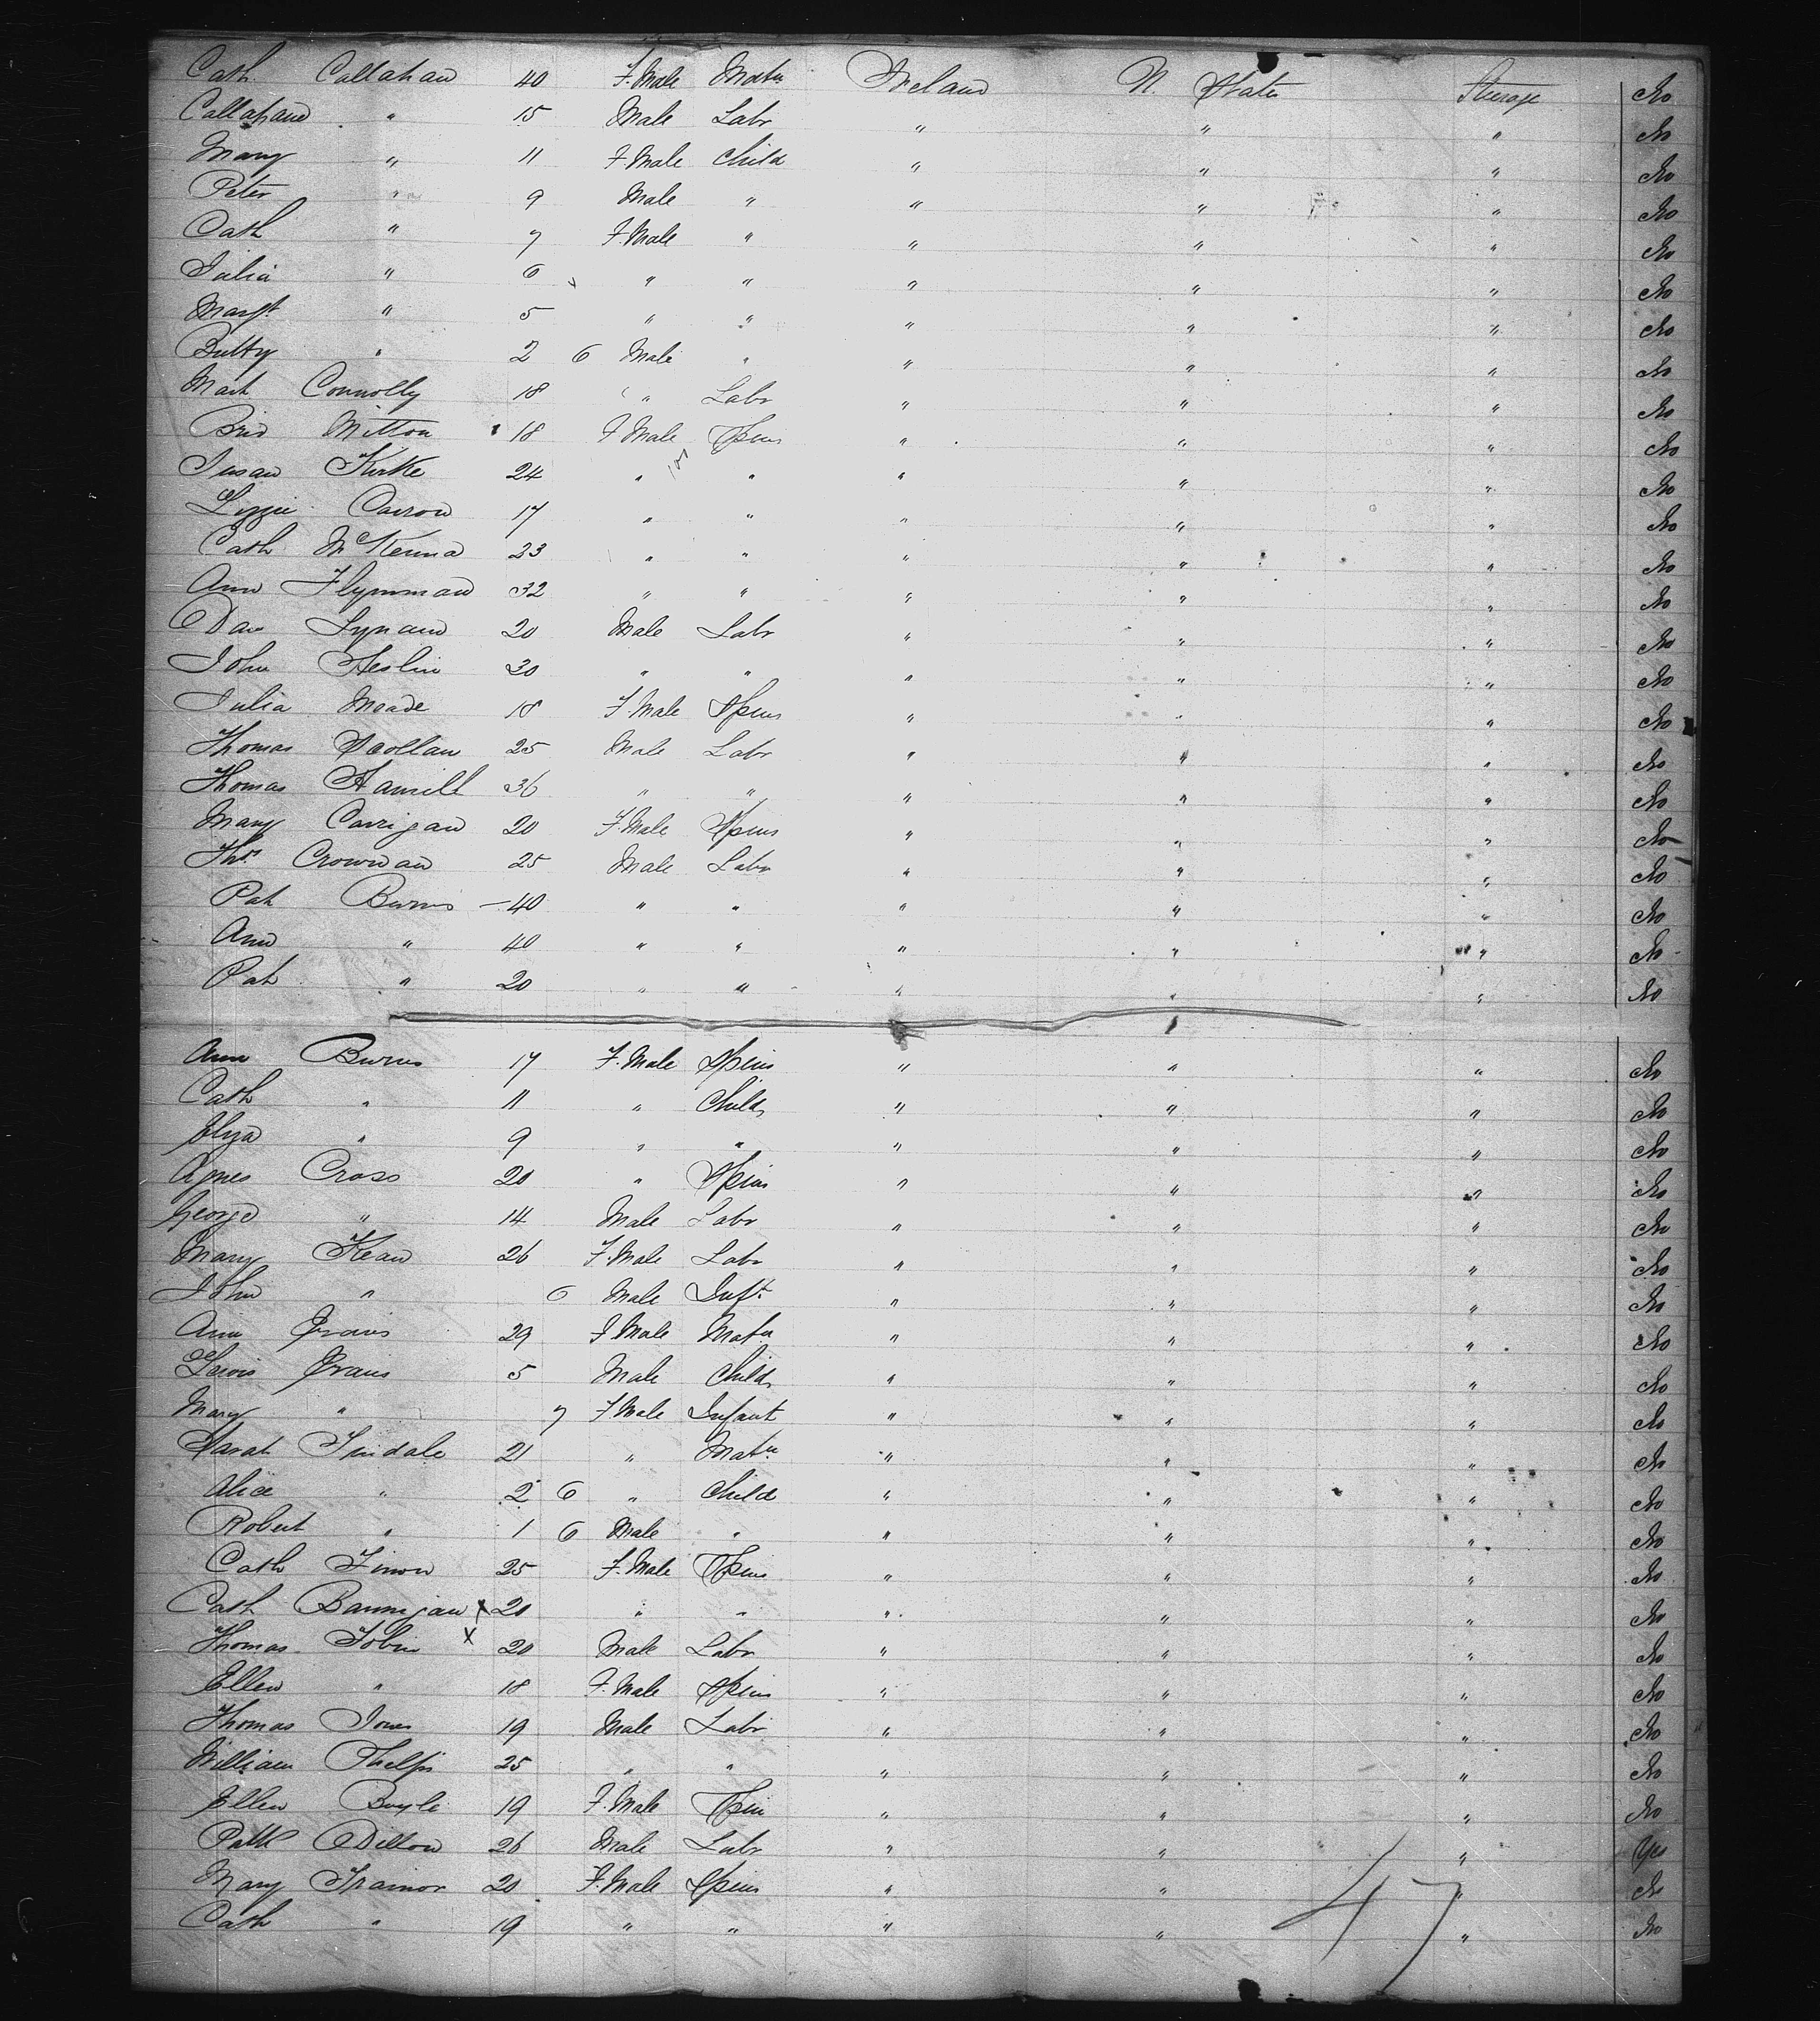 Cath Callahan 40 F.Male Matn Ireland U. States Steerage No
Callahan " 15 Male Labr " " " No
Mary " 11 F.Male Child " " " No
Peter " 9 Male " " " " No
Cath " 7 F.Male " " " " No
Julia " 6 " " " " " No
Margt " 5 " " " " " No
" 2 6 Male " " " " No
Connolly 18 " Labr " " " No
Brid Mitton 18 F.Male Spins " " " No
Susan Kirke 24 " " " " " No
Lizzie Carson 17 " " " " " No
Cath McKenna 23 " " " " " No
Ann Flynman 32 " " " " " No
Dan Lynam 20 Male Labr " " " No
John Heslin 30 " " " " " No
Julia Meade 18 F.Male Spins " " " No
Thomas Scollan 25 Male Labr " " " No
Thomas Hamill 36 " " " " " No
Mary Carrigan 20 F.Male Spins " " " No
Thos Crownan 25 Male Labr " " " No
Pat Burns 40 " " " " " No
Ann " 40 " " " " " No
Pat " 20 " " " " " No
Ann Burns 17 F.Male Spins " " " No
Cath " 11 " Child " " " No
Elza " 9 " " " " " No
Agnes Cross 20 " Spins " " " No
George " 14 Male Labr " " " No
Mary Kean 26 F.Male Labr " " " No
John " 6 Male Inft " " " No
Ann 29 F.Male Matn " " " No
Lewis 5 Male Child " " " No
Mary " 7 F.Male Infant " " " No
Sarah Tindale 21 " Matn " " " No
Alice " 2 6 " Child " " " No
Robert " 1 6 Male " " " " No
Cath Finon 25 F.Male Spins " " " No
Cath Bannigan x 20 " " " " " No
Thomas Tobin x 20 Male Labr " " " No
Ellen " 18 F.Male Spins " " " No
Thomas Jones 19 Male Labr " " " No
William Phelps 25 " " " " " No
Ellen Boyle 19 F.Male Spin " " " No
Patk Dillon 26 Male Labr " " " Yes
Mary Trainor 20 F.Male Spins " " " No
Cath " 19 " " " " " No
47